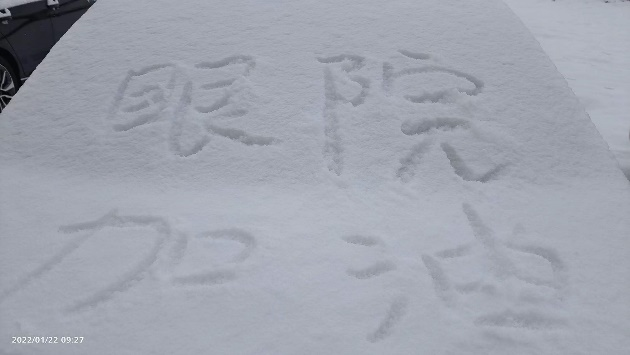 眼院
加油
2022/01/22 09:27